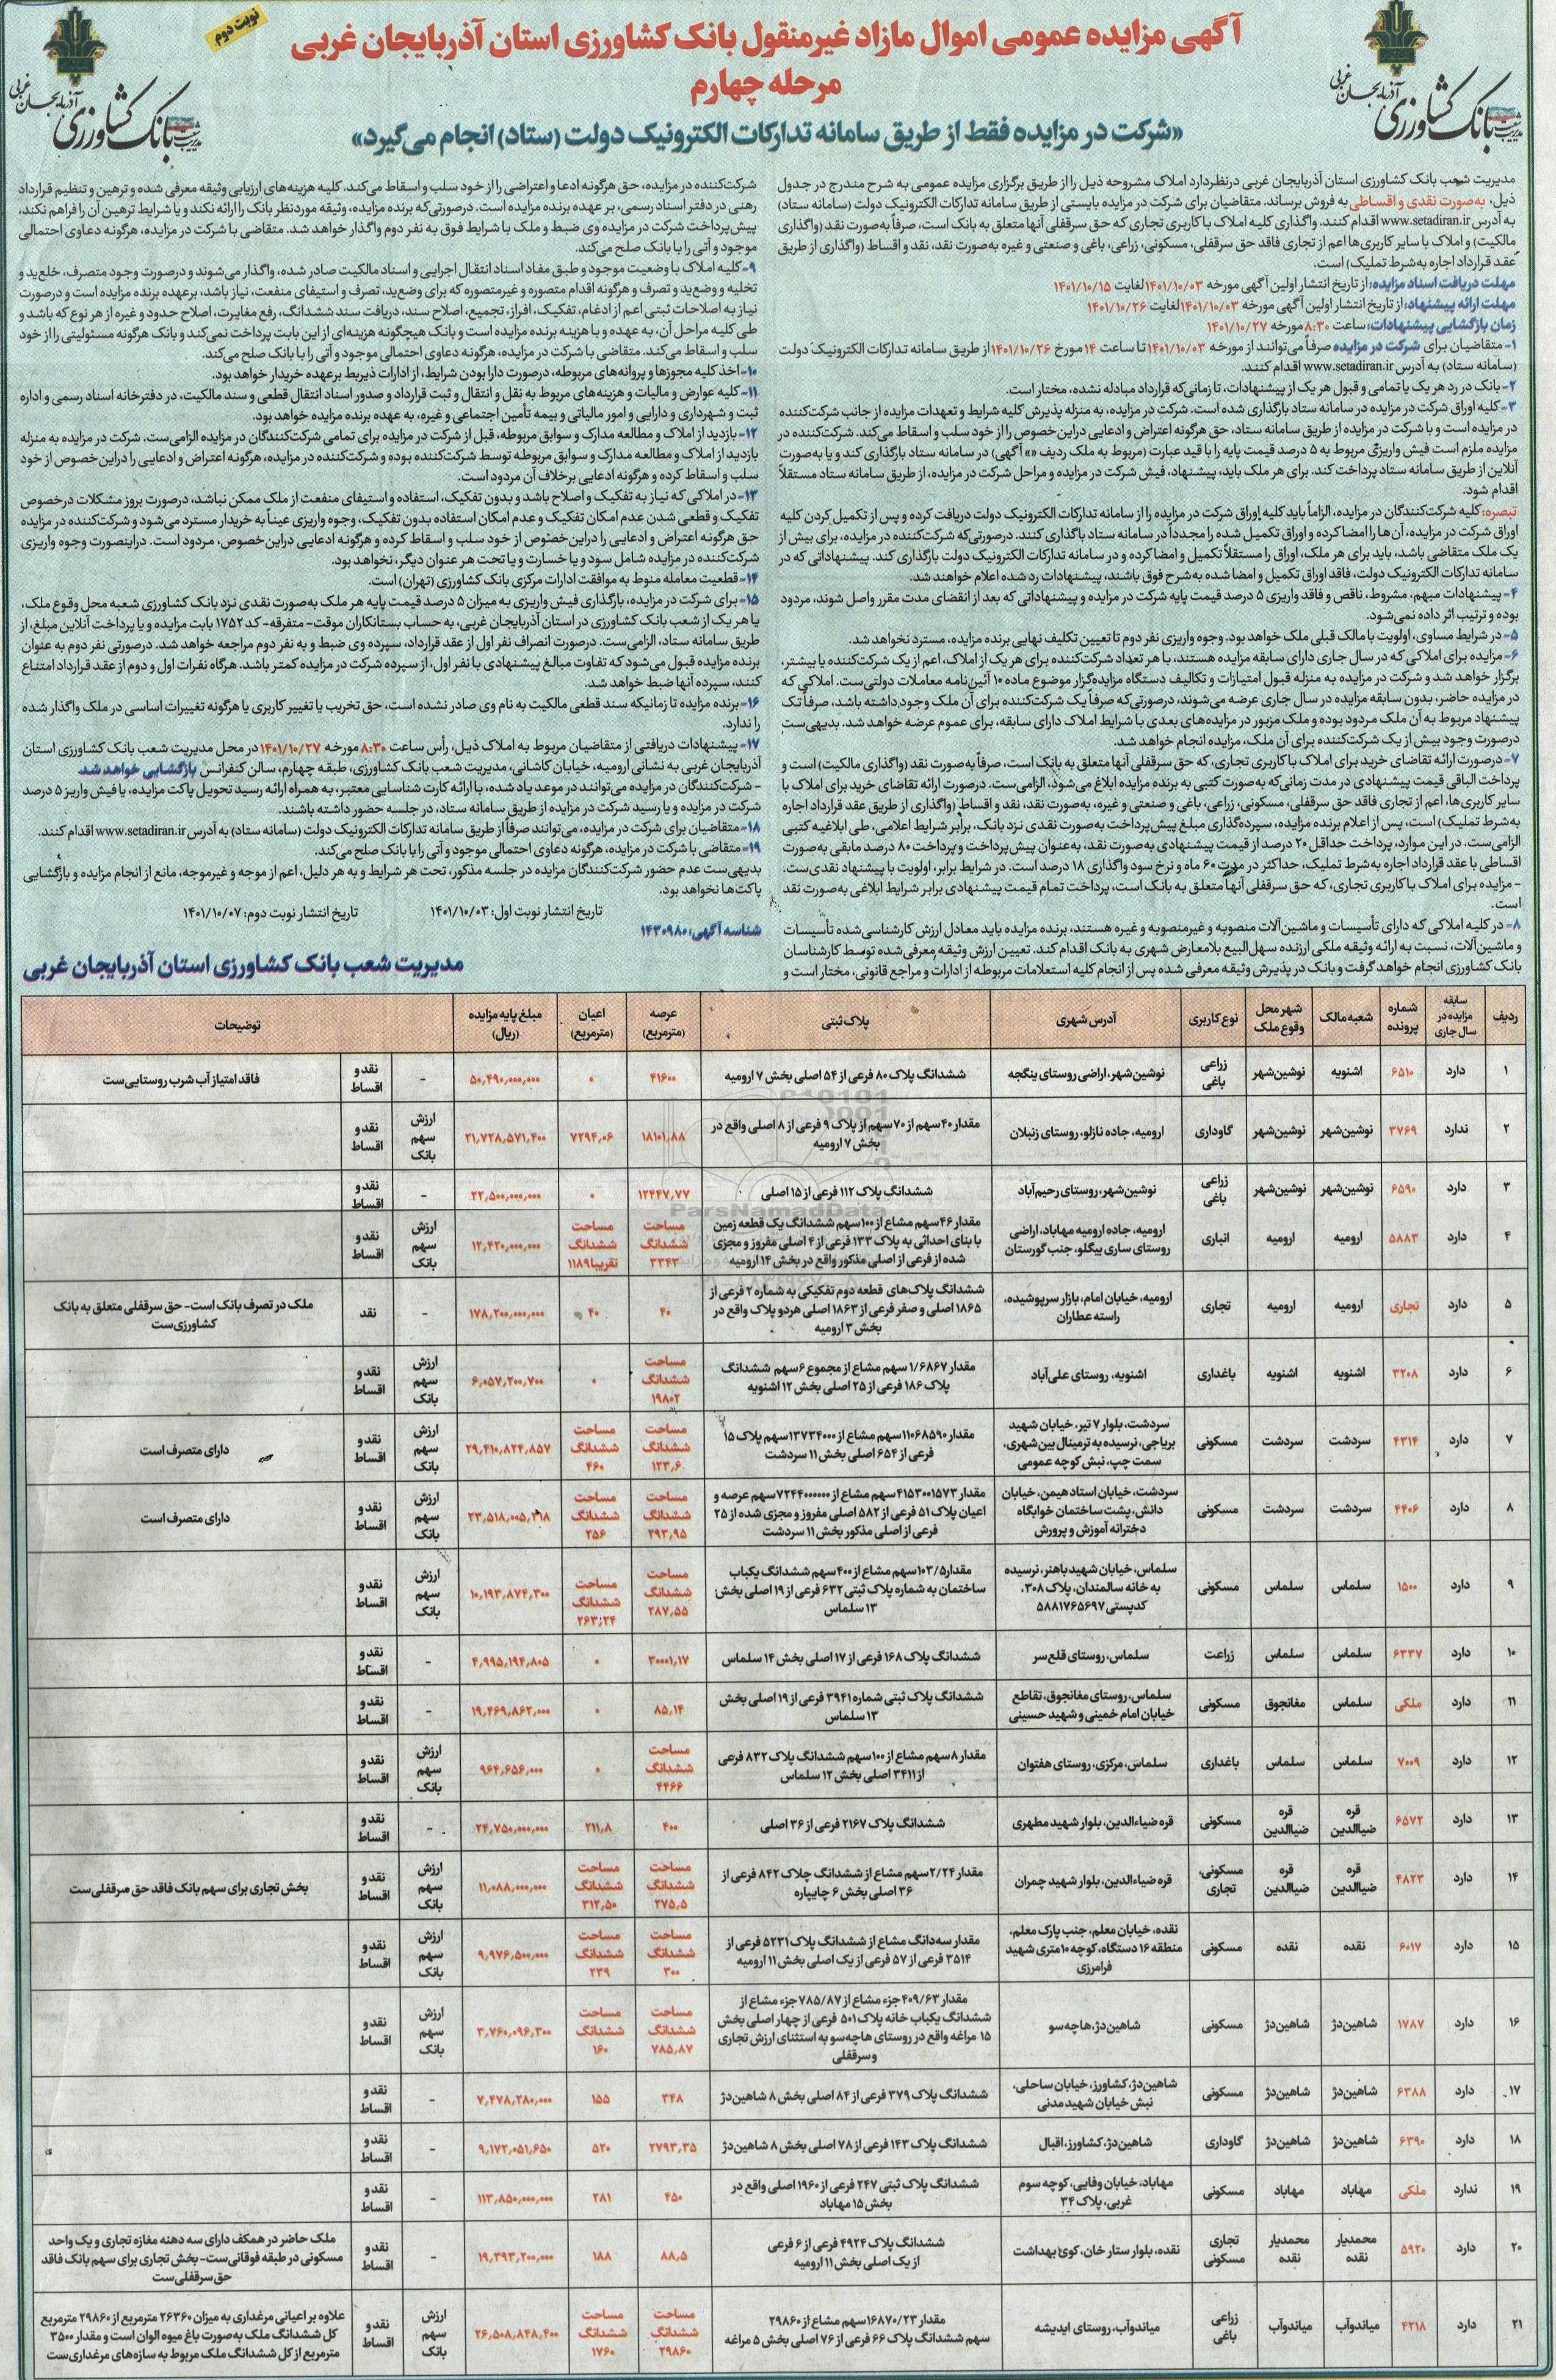 نوبت دوم
آگهی مزایده عمومی اموال مازاد غیرمنقول بانک کشاورزی استان آذربایجان غربی
مرحله چهارم
«شرکت در مزایده فقط از طریق سامانه تدارکات الکترونیک دولت (ستاد) انجام می‌گیرد»
بانک کشاورزی
مدیریت شعب بانک کشاورزی استان آذربایجان غربی درنظردارد املاک مشروحه ذیل را از طریق برگزاری مزایده عمومی به شرح مندرج در جدول
ذیل، به‌صورت نقدی و اقساطی به فروش برساند. متقاضیان برای شرکت در مزایده بایستی از طریق سامانه تدارکات الکترونیک دولت (سامانه ستاد)
به آدرس www.setadiran.ir اقدام کنند. واگذاری کلیه املاک با کاربری تجاری که حق سرقفلی آنها متعلق به بانک است، صرفاً به‌صورت نقد (واگذاری
مالکیت) و املاک با سایر کاربری‌ها اعم از تجاری فاقد حق سرقفلی، مسکونی، زراعی، باغی و صنعتی و غیره به‌صورت نقد، نقد و اقساط (واگذاری از طریق
عقد قرارداد اجاره به‌شرط تملیک) است.
مهلت دریافت اسناد مزایده: از تاریخ انتشار اولین آگهی مورخه ۱۴۰۱/۱۰/۰۳ لغایت ۱۴۰۱/۱۰/۱۵
مهلت ارائه پیشنهاد: از تاریخ انتشار اولین آگهی مورخه ۱۴۰۱/۱۰/۰۳ لغایت ۱۴۰۱/۱۰/۲۶
زمان بازگشایی پیشنهادات: ساعت ۸:۳۰ مورخه ۱۴۰۱/۱۰/۲۷
۱- متقاضیان برای شرکت در مزایده صرفاً می‌توانند از مورخه ۱۴۰۱/۱۰/۰۳ تا ساعت ۱۴ مورخ ۱۴۰۱/۱۰/۲۶ از طریق سامانه تدارکات الکترونیک دولت
(سامانه ستاد) به آدرس www.setadiran.ir اقدام کنند.
۲- بانک در رد هر یک یا تمامی و قبول هر یک از پیشنهادات، تا زمانی‌که قرارداد مبادله نشده، مختار است.
۳- کلیه اوراق شرکت در مزایده در سامانه ستاد بارگذاری شده است. شرکت در مزایده، به منزله پذیرش کلیه شرایط و تعهدات مزایده از جانب شرکت‌کننده
در مزایده است و با شرکت در مزایده از طریق سامانه ستاد، حق هرگونه اعتراض و ادعایی دراین‌خصوص را از خود سلب و اسقاط می‌کند. شرکت‌کننده در
مزایده ملزم است فیش واریزی مربوط به ۵ درصد قیمت پایه را با قید عبارت (مربوط به ملک ردیف «» آگهی) در سامانه ستاد بارگذاری کند و یا به‌صورت
آنلاین از طریق سامانه ستاد پرداخت کند. برای هر ملک باید، پیشنهاد، فیش شرکت در مزایده و مراحل شرکت در مزایده، از طریق سامانه ستاد مستقلاً
اقدام شود.
تبصره: کلیه شرکت‌کنندگان در مزایده، الزاماً باید کلیه اوراق شرکت در مزایده را از سامانه تدارکات الکترونیک دولت دریافت کرده و پس از تکمیل کردن کلیه
اوراق شرکت در مزایده، آن‌ها را امضا کرده و اوراق تکمیل شده را مجدداً در سامانه ستاد باگذاری کنند. درصورتی‌که شرکت‌کننده در مزایده، برای بیش از
یک ملک متقاضی باشد، باید برای هر ملک، اوراق را مستقلاً تکمیل و امضا کرده و در سامانه تدارکات الکترونیک دولت بارگذاری کند. پیشنهاداتی که در
سامانه تدارکات الکترونیک دولت، فاقد اوراق تکمیل و امضا شده به‌شرح فوق باشند، پیشنهادات رد شده اعلام خواهند شد.
۴- پیشنهادات مبهم، مشروط، ناقص و فاقد واریزی ۵ درصد قیمت پایه شرکت در مزایده و پیشنهاداتی که بعد از انقضای مدت مقرر واصل شوند، مردود
بوده و ترتیب اثر داده نمی‌شود.
۵- در شرایط مساوی، اولویت با مالک قبلی ملک خواهد بود. وجوه واریزی نفر دوم تا تعیین تکلیف نهایی برنده مزایده، مسترد نخواهد شد.
۶- مزایده برای املاکی که در سال جاری دارای سابقه مزایده هستند، با هر تعداد شرکت‌کننده برای هر یک از املاک، اعم از یک شرکت‌کننده یا بیشتر،
برگزار خواهد شد و شرکت در مزایده به منزله قبول امتیازات و تکالیف دستگاه مزایده‌گزار موضوع ماده ۱۰ آئین‌نامه معاملات دولتی‌ست. املاکی که
در مزایده حاضر، بدون سابقه مزایده در سال جاری عرضه می‌شوند، درصورتی‌که صرفاً یک شرکت‌کننده برای آن ملک وجود داشته باشد، صرفاً تک
پیشنهاد مربوط به آن ملک مردود بوده و ملک مزبور در مزایده‌های بعدی با شرایط املاک دارای سابقه، برای عموم عرضه خواهد شد. بدیهی‌ست
درصورت وجود بیش از یک شرکت‌کننده برای آن ملک، مزایده انجام خواهد شد.
۷- درصورت ارائه تقاضای خرید برای املاک با کاربری تجاری، که حق سرقفلی آنها متعلق به بانک است، صرفاً به‌صورت نقد (واگذاری مالکیت) است و
پرداخت الباقی قیمت پیشنهادی در مدت زمانی‌که به‌صورت کتبی به برنده مزایده ابلاغ می‌شود، الزامی‌ست. درصورت ارائه تقاضای خرید برای املاک با
سایر کاربری‌ها، اعم از تجاری فاقد حق سرقفلی، مسکونی، زراعی، باغی و صنعتی و غیره، به‌صورت نقد، نقد و اقساط (واگذاری از طریق عقد قرارداد اجاره
به‌شرط تملیک) است، پس از اعلام برنده مزایده، سپرده‌گذاری مبلغ پیش‌پرداخت به‌صورت نقدی نزد بانک، برابر شرایط اعلامی، طی ابلاغیه کتبی
الزامی‌ست. در این موارد، پرداخت حداقل ۲۰ درصد از قیمت پیشنهادی به‌صورت نقد، به‌عنوان پیش‌پرداخت و پرداخت ۸۰ درصد مابقی به‌صورت
اقساطی با عقد قرارداد اجاره به‌شرط تملیک، حداکثر در مدت ۶۰ ماه و نرخ سود واگذاری ۱۸ درصد است. در شرایط برابر، اولویت با پیشنهاد نقدی‌ست.
- مزایده برای املاک با کاربری تجاری، که حق سرقفلی آنها متعلق به بانک است، پرداخت تمام قیمت پیشنهادی برابر شرایط ابلاغی به‌صورت نقد
است.
۸- در کلیه املاکی که دارای تأسیسات و ماشین‌آلات منصوبه و غیرمنصوبه و غیره هستند، برنده مزایده باید معادل ارزش کارشناسی‌شده تأسیسات
و ماشین‌آلات، نسبت به ارائه وثیقه ملکی ارزنده سهل‌البیع بلامعارض شهری به بانک اقدام کند. تعیین ارزش وثیقه معرفی‌شده توسط کارشناسان
بانک کشاورزی انجام خواهد گرفت و بانک در پذیرش وثیقه معرفی شده پس از انجام کلیه استعلامات مربوطه از ادارات و مراجع قانونی، مختار است و
شرکت‌کننده در مزایده، حق هرگونه ادعا و اعتراضی را از خود سلب و اسقاط می‌کند. کلیه هزینه‌های ارزیابی وثیقه معرفی شده و ترهین و تنظیم قرارداد
رهنی در دفتر اسناد رسمی، بر عهده برنده مزایده است. درصورتی‌که برنده مزایده، وثیقه موردنظر بانک را ارائه نکند و یا شرایط ترهین آن را فراهم نکند،
پیش‌پرداخت شرکت در مزایده وی ضبط و ملک با شرایط فوق به نفر دوم واگذار خواهد شد. متقاضی با شرکت در مزایده، هرگونه دعاوی احتمالی
موجود و آتی را با بانک صلح می‌کند.
۹- کلیه املاک با وضعیت موجود و طبق مفاد اسناد انتقال اجرایی و اسناد مالکیت صادر شده، واگذار می‌شوند و درصورت وجود متصرف، خلع‌ید و
تخلیه و وضع‌ید و تصرف و هرگونه اقدام متصوره و غیرمتصوره که برای وضع‌ید، تصرف و استیفای منفعت، نیاز باشد، برعهده برنده مزایده است و درصورت
نیاز به اصلاحات ثبتی اعم از ادغام، تفکیک، افراز، تجمیع، اصلاح سند، دریافت سند ششدانگ، رفع مغایرت، اصلاح حدود و غیره از هر نوع که باشد و
طی کلیه مراحل آن، به عهده و با هزینه برنده مزایده است و بانک هیچگونه هزینه‌ای از این بابت پرداخت نمی‌کند و بانک هرگونه مسئولیتی را از خود
سلب و اسقاط می‌کند. متقاضی با شرکت در مزایده، هرگونه دعاوی احتمالی موجود و آتی را با بانک صلح می‌کند.
۱۰- اخذ کلیه مجوزها و پروانه‌های مربوطه، درصورت دارا بودن شرایط، از ادارات ذیربط برعهده خریدار خواهد بود.
۱۱- کلیه عوارض و مالیات و هزینه‌های مربوط به نقل و انتقال و ثبت قرارداد و صدور اسناد انتقال قطعی و سند مالکیت، در دفترخانه اسناد رسمی و اداره
ثبت و شهرداری و دارایی و امور مالیاتی و بیمه تأمین اجتماعی و غیره، به عهده برنده مزایده خواهد بود.
۱۲- بازدید از املاک و مطالعه مدارک و سوابق مربوطه، قبل از شرکت در مزایده برای تمامی شرکت‌کنندگان در مزایده الزامی‌ست. شرکت در مزایده به منزله
بازدید از املاک و مطالعه مدارک و سوابق مربوطه توسط شرکت‌کننده بوده و شرکت‌کننده در مزایده، هرگونه اعتراض و ادعایی را دراین خصوص از خود
سلب و اسقاط کرده و هرگونه ادعایی برخلاف آن مردود است.
۱۳- در املاکی که نیاز به تفکیک و اصلاح باشد و بدون تفکیک، استفاده و استیفای منفعت از ملک ممکن نباشد، درصورت بروز مشکلات درخصوص
تفکیک و قطعی شدن عدم امکان تفکیک و عدم امکان استفاده بدون تفکیک، وجوه واریزی عیناً به خریدار مسترد می‌شود و شرکت‌کننده در مزایده
حق هرگونه اعتراض و ادعایی را دراین خصوص از خود سلب و اسقاط کرده و هرگونه ادعایی دراین خصوص، مردود است. دراینصورت وجوه واریزی
شرکت‌کننده در مزایده شامل سود و یا خسارت و یا تحت هر عنوان دیگر، نخواهد بود.
۱۴- قطعیت معامله منوط به موافقت ادارات مرکزی بانک کشاورزی (تهران) است.
۱۵- برای شرکت در مزایده، بارگذاری فیش واریزی به میزان ۵ درصد قیمت پایه هر ملک به‌صورت نقدی نزد بانک کشاورزی شعبه محل وقوع ملک،
یا هر یک از شعب بانک کشاورزی در استان آذربایجان غربی، به حساب بستانکاران موقت- متفرقه- کد ۱۷۵۲ بابت مزایده و یا پرداخت آنلاین مبلغ، از
طریق سامانه ستاد، الزامی‌ست. درصورت انصراف نفر اول از عقد قرارداد، سپرده وی ضبط و به نفر دوم مراجعه خواهد شد. درصورتی نفر دوم به عنوان
برنده مزایده قبول می‌شود که تفاوت مبالغ پیشنهادی با نفر اول، از سپرده شرکت در مزایده کمتر باشد. هرگاه نفرات اول و دوم از عقد قرارداد امتناع
کنند، سپرده آنها ضبط خواهد شد.
۱۶- برنده مزایده تا زمانیکه سند قطعی مالکیت به نام وی صادر نشده است، حق تخریب یا تغییر کاربری یا هرگونه تغییرات اساسی در ملک واگذار شده
را ندارد.
۱۷- پیشنهادات دریافتی از متقاضیان مربوط به املاک ذیل، رأس ساعت ۸:۳۰ مورخه ۱۴۰۱/۱۰/۲۷ در محل مدیریت شعب بانک کشاورزی استان
آذربایجان غربی به نشانی ارومیه، خیابان کاشانی، مدیریت شعب بانک کشاورزی، طبقه چهارم، سالن کنفرانس بازگشایی خواهد شد.
- شرکت‌کنندگان در مزایده می‌توانند در موعد یاد شده، با ارائه کارت شناسایی معتبر، به همراه ارائه رسید تحویل پاکت مزایده، یا فیش واریز ۵ درصد
شرکت در مزایده و یا رسید شرکت در مزایده از طریق سامانه ستاد، در جلسه حضور داشته باشند.
۱۸- متقاضیان برای شرکت در مزایده، می‌توانند صرفاً از طریق سامانه تدارکات الکترونیک دولت (سامانه ستاد) به آدرس www.setadiran.ir اقدام کنند.
۱۹- متقاضی با شرکت در مزایده، هرگونه دعاوی احتمالی موجود و آتی را با بانک صلح می‌کند.
بدیهی‌ست عدم حضور شرکت‌کنندگان مزایده در جلسه مذکور، تحت هر شرایط و به هر دلیل، اعم از موجه و غیرموجه، مانع از انجام مزایده و بازگشایی
پاکت‌ها نخواهد بود.
تاریخ انتشار نوبت اول: ۱۴۰۱/۱۰/۰۳ تاریخ انتشار نوبت دوم: ۱۴۰۱/۱۰/۰۷
شناسه آگهی: ۱۴۳۰۹۸۰
مدیریت شعب بانک کشاورزی استان آذربایجان غربی
ردیف | سابقه مزایده در سال جاری | شماره پرونده | شعبه مالک | شهر محل وقوع ملک | نوع کاربری | آدرس شهری | پلاک ثبتی | عرصه (مترمربع) | اعیان (مترمربع) | مبلغ پایه مزایده (ریال) | توضیحات
۱ | دارد | ۶۵۱۰ | اشنویه | نوشین‌شهر | زراعی باغی | نوشین‌شهر، اراضی روستای ینگجه | ششدانگ پلاک ۸۰ فرعی از ۵۴ اصلی بخش ۷ ارومیه | ۴۱۶۰۰ | ۰ | ۵۰,۴۹۰,۰۰۰,۰۰۰ | - | نقد و اقساط | فاقد امتیاز آب شرب روستایی‌ست
۲ | ندارد | ۳۷۶۹ | نوشین‌شهر | نوشین‌شهر | گاوداری | ارومیه، جاده نازلو، روستای زنبلان | مقدار ۴۰ سهم از ۷۰ سهم از پلاک ۹ فرعی از ۸ اصلی واقع در بخش ۷ ارومیه | ۱۸۱۰۱,۸۸ | ۷۲۹۴,۰۶ | ۲۱,۷۲۸,۵۷۱,۴۰۰ | ارزش سهم بانک | نقد و اقساط
۳ | دارد | ۶۵۹۰ | نوشین‌شهر | نوشین‌شهر | زراعی باغی | نوشین‌شهر، روستای رحیم‌آباد | ششدانگ پلاک ۱۱۲ فرعی از ۱۵ اصلی | ۱۲۴۴۷,۷۷ | ۰ | ۲۲,۵۰۰,۰۰۰,۰۰۰ | - | نقد و اقساط
۴ | دارد | ۵۸۸۳ | ارومیه | ارومیه | انباری | ارومیه، جاده ارومیه مهاباد، اراضی روستای ساری بیگلو، جنب گورستان | مقدار ۴۶ سهم مشاع از ۱۰۰ سهم ششدانگ یک قطعه زمین با بنای احداثی به پلاک ۱۳۳ فرعی از ۴ اصلی مفروز و مجزی شده از فرعی از اصلی مذکور واقع در بخش ۱۴ ارومیه | مساحت ششدانگ ۳۳۴۳ | مساحت ششدانگ تقریبا ۱۱۸۹ | ۱۲,۴۲۰,۰۰۰,۰۰۰ | ارزش سهم بانک | نقد و اقساط
۵ | دارد | تجاری | ارومیه | ارومیه | تجاری | ارومیه، خیابان امام، بازار سرپوشیده، راسته عطاران | ششدانگ پلاک‌های قطعه دوم تفکیکی به شماره ۲ فرعی از ۱۸۶۵ اصلی و صفر فرعی از ۱۸۶۳ اصلی هردو پلاک واقع در بخش ۳ ارومیه | ۴۰ | ۴۰ | ۱۷۸,۲۰۰,۰۰۰,۰۰۰ | - | نقد | ملک در تصرف بانک است- حق سرقفلی متعلق به بانک کشاورزی‌ست
۶ | دارد | ۳۲۰۸ | اشنویه | اشنویه | باغداری | اشنویه، روستای علی‌آباد | مقدار ۱/۶۸۶۷ سهم مشاع از مجموع ۶ سهم ششدانگ پلاک ۱۸۶ فرعی از ۲۵ اصلی بخش ۱۲ اشنویه | مساحت ششدانگ ۱۹۸۰۲ | ۰ | ۶,۰۵۷,۲۰۰,۷۰۰ | ارزش سهم بانک | نقد و اقساط
۷ | دارد | ۴۳۱۴ | سردشت | سردشت | مسکونی | سردشت، بلوار ۷ تیر، خیابان شهید بریاجی، نرسیده به ترمینال بین‌شهری، سمت چپ، نبش کوچه عمومی | مقدار ۱۱۰۶۸۵۹۰ سهم مشاع از ۱۳۷۳۴۰۰۰ سهم پلاک ۱۵ فرعی از ۶۵۴ اصلی بخش ۱۱ سردشت | مساحت ششدانگ ۱۲۳,۶۰ | مساحت ششدانگ ۴۶۰ | ۲۹,۴۱۰,۸۲۴,۸۵۷ | ارزش سهم بانک | نقد و اقساط | دارای متصرف است
۸ | دارد | ۴۴۰۶ | سردشت | سردشت | مسکونی | سردشت، خیابان استاد هیمن، خیابان دانش، پشت ساختمان خوابگاه دخترانه آموزش و پرورش | مقدار ۴۱۵۳۰۰۱۵۷۳ سهم مشاع از ۷۲۴۴۰۰۰۰۰۰ سهم عرصه و اعیان پلاک ۵۱ فرعی از ۵۸۲ اصلی مفروز و مجزی شده از ۲۵ فرعی از اصلی مذکور بخش ۱۱ سردشت | مساحت ششدانگ ۲۹۳,۹۵ | مساحت ششدانگ ۲۵۶ | ارزش سهم بانک | نقد و اقساط | دارای متصرف است
۹ | دارد | ۱۵۰۰ | سلماس | سلماس | مسکونی | سلماس، خیابان شهید باهنر، نرسیده به خانه سالمندان، پلاک ۳۰۸، کدپستی ۵۸۸۱۷۶۵۶۹۷ | مقدار ۱۰۳/۵ سهم مشاع از ۴۰۰ سهم ششدانگ یکباب ساختمان به شماره پلاک ثبتی ۶۳۲ فرعی از ۱۹ اصلی بخش ۱۳ سلماس | مساحت ششدانگ ۲۸۷,۵۵ | مساحت ششدانگ ۲۶۳,۲۴ | ۱۰,۱۹۳,۸۷۴,۳۰۰ | ارزش سهم بانک | نقد و اقساط
۱۰ | دارد | ۶۳۳۷ | سلماس | سلماس | زراعت | سلماس، روستای قلع‌سر | ششدانگ پلاک ۱۶۸ فرعی از ۱۷ اصلی بخش ۱۴ سلماس | ۳۰۰۰۱,۱۷ | ۰ | ۴,۹۹۵,۱۹۴,۸۰۵ | - | نقد و اقساط
۱۱ | دارد | ملکی | سلماس | مغانجوق | مسکونی | سلماس، روستای مغانجوق، تقاطع خیابان امام خمینی و شهید حسینی | ششدانگ پلاک ثبتی شماره ۳۹۴۱ فرعی از ۱۹ اصلی بخش ۱۳ سلماس | ۸۵,۱۴ | ۰ | ۱۹,۴۶۹,۸۶۲,۰۰۰ | - | نقد و اقساط
۱۲ | دارد | ۷۰۰۹ | سلماس | سلماس | باغداری | سلماس، مرکزی، روستای هفتوان | مقدار ۸ سهم مشاع از ۱۰۰ سهم ششدانگ پلاک ۸۳۲ فرعی از ۳۴۱۱ اصلی بخش ۱۲ سلماس | مساحت ششدانگ ۴۴۶۶ | ۰ | ۹۶۴,۶۵۶,۰۰۰ | ارزش سهم بانک | نقد و اقساط
۱۳ | دارد | ۶۵۷۲ | قره ضیاالدین | قره ضیاالدین | مسکونی | قره ضیاءالدین، بلوار شهید مطهری | ششدانگ پلاک ۲۱۶۷ فرعی از ۳۶ اصلی | ۴۰۰ | ۲۱۱,۸ | ۲۴,۷۵۰,۰۰۰,۰۰۰ | - | نقد و اقساط
۱۴ | دارد | ۴۸۲۳ | قره ضیاالدین | قره ضیاالدین | مسکونی، تجاری | قره ضیاءالدین، بلوار شهید چمران | مقدار ۲/۲۴ سهم مشاع از ششدانگ چلاک ۸۴۲ فرعی از ۳۶ اصلی بخش ۶ چایپاره | مساحت ششدانگ ۲۷۵,۵ | مساحت ششدانگ ۳۱۲,۵۰ | ۱۱,۰۸۸,۰۰۰,۰۰۰ | ارزش سهم بانک | نقد و اقساط | بخش تجاری برای سهم بانک فاقد حق سرقفلی‌ست
۱۵ | دارد | ۶۰۱۷ | نقده | نقده | مسکونی | نقده، خیابان معلم، جنب پارک معلم، منطقه ۱۶ دستگاه، کوچه ۱۰ متری شهید فرامرزی | مقدار سه‌دانگ مشاع از ششدانگ پلاک ۵۲۳۱ فرعی از ۳۵۱۴ فرعی از ۵۷ فرعی از یک اصلی بخش ۱۱ ارومیه | مساحت ششدانگ ۳۰۰ | مساحت ششدانگ ۲۳۹ | ۹,۹۷۶,۵۰۰,۰۰۰ | ارزش سهم بانک | نقد و اقساط
۱۶ | دارد | ۱۷۸۷ | شاهین‌دژ | شاهین‌دژ | مسکونی | شاهین‌دژ، هاچه‌سو | مقدار ۴۰۹/۶۳ جزء مشاع از ۷۸۵/۸۷ جزء مشاع از ششدانگ یکباب خانه پلاک ۵۰۱ فرعی از چهار اصلی بخش ۱۵ مراغه واقع در روستای هاچه‌سو به استثنای ارزش تجاری و سرقفلی | مساحت ششدانگ ۷۸۵,۸۷ | مساحت ششدانگ ۱۶۰ | ۳,۷۶۰,۰۹۶,۳۰۰ | ارزش سهم بانک | نقد و اقساط
۱۷ | دارد | ۶۳۸۸ | شاهین‌دژ | شاهین‌دژ | مسکونی | شاهین‌دژ، کشاورز، خیابان ساحلی، نبش خیابان شهید مدنی | ششدانگ پلاک ۳۷۹ فرعی از ۸۴ اصلی بخش ۸ شاهین‌دژ | ۳۴۸ | ۱۵۵ | ۷,۴۷۸,۲۸۰,۰۰۰ | - | نقد و اقساط
۱۸ | دارد | ۶۳۹۰ | شاهین‌دژ | شاهین‌دژ | گاوداری | شاهین‌دژ، کشاورز، اقبال | ششدانگ پلاک ۱۴۳ فرعی از ۷۸ اصلی بخش ۸ شاهین‌دژ | ۲۷۹۳,۳۵ | ۵۲۰ | ۹,۱۷۲,۰۵۱,۶۵۰ | - | نقد و اقساط
۱۹ | ندارد | ملکی | مهاباد | مهاباد | مسکونی | مهاباد، خیابان وفایی، کوچه سوم غربی، پلاک ۳۴ | ششدانگ پلاک ثبتی ۲۴۷ فرعی از ۱۹۶۰ اصلی واقع در بخش ۱۵ مهاباد | ۴۵۰ | ۲۸۱ | ۱۱۳,۸۵۰,۰۰۰,۰۰۰ | - | نقد و اقساط
۲۰ | دارد | ۵۹۲۰ | محمدیار نقده | محمدیار نقده | تجاری مسکونی | نقده، بلوار ستار خان، کوی بهداشت | ششدانگ پلاک ۴۹۲۴ فرعی از ۶ فرعی از یک اصلی بخش ۱۱ ارومیه | ۸۸,۵ | ۱۸۸ | ۱۹,۳۹۳,۲۰۰,۰۰۰ | - | نقد و اقساط | ملک حاضر در همکف دارای سه دهنه مغازه تجاری و یک واحد مسکونی در طبقه فوقانی‌ست- بخش تجاری برای سهم بانک فاقد حق سرقفلی‌ست
۲۱ | دارد | ۴۲۱۸ | میاندوآب | میاندوآب | زراعی باغی | میاندوآب، روستای ایدیشه | مقدار ۱۶۸۷۰/۲۳ سهم مشاع از ۲۹۸۶۰ سهم ششدانگ پلاک ۶۶ فرعی از ۷۶ اصلی بخش ۵ مراغه | مساحت ششدانگ ۲۹۸۶۰ | مساحت ششدانگ ۱۷۶۰ | ۲۶,۵۰۸,۸۴۸,۴۰۰ | ارزش سهم بانک | نقد و اقساط | علاوه بر اعیانی مرغداری به میزان ۲۶۳۶۰ مترمربع از ۲۹۸۶۰ مترمربع کل ششدانگ ملک به‌صورت باغ میوه الوان است و مقدار ۳۵۰۰ مترمربع از کل ششدانگ ملک مربوط به سازه‌های مرغداری‌ست
ParsNamadData